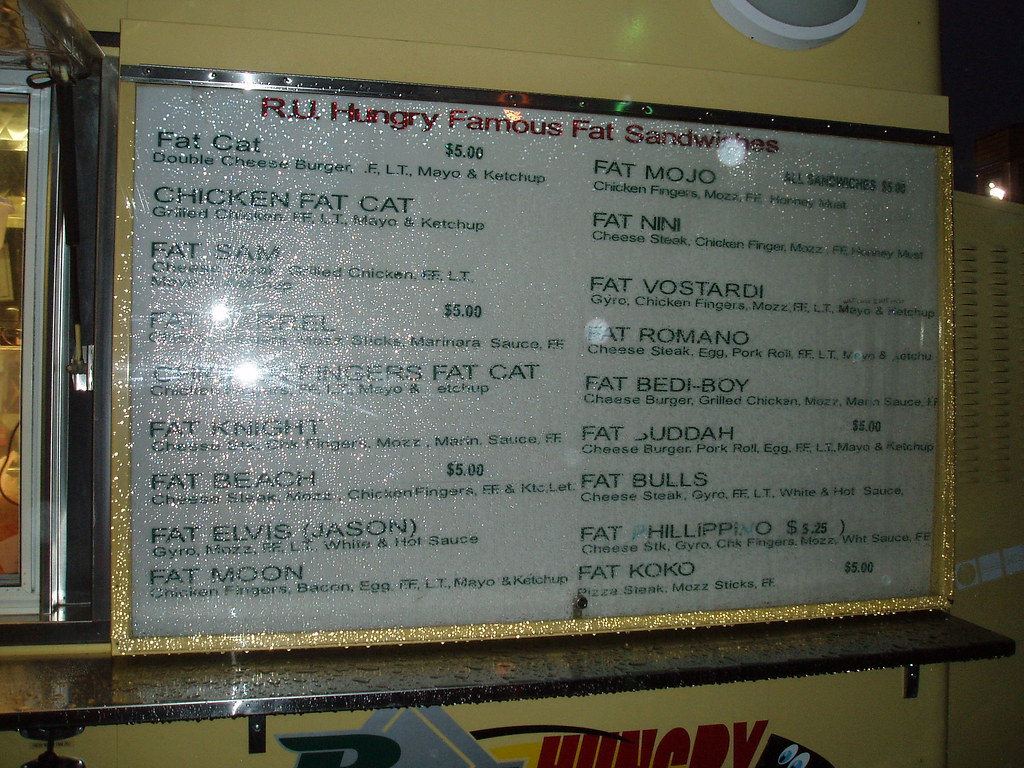 R.U. Hungry Famous Fat Sandwiches
Fat Cat $5.00
Double Cheese Burger, .F, L.T., Mayo & Ketchup
CHICKEN FAT CAT
Grilled Chicken, FF, L.T., Mayo & Ketchup
FAT SAM
Cheese Grilled Chicken, FF, L.T.,
$5.00
Mozz Sticks, Marinara Sauce, FF
FINGERS FAT CAT
Mayo & etchup
FAT KNIGHT
Cheese Chk Fingers, Mozz, Marin. Sauce, FF
FAT BEACH $5.00
Cheese Steak, Mozz, Chicken Fingers, FF & Ktc,Let.
FAT ELVIS (JASON)
Gyro, Mozz, FF, L.T. White & Hot Sauce
FAT MOON
Chicken Fingers, Bacon, Egg, FF, L.T., Mayo & Ketchup
FAT MOJO ALL SANDWICHES $5.00
Chicken Fingers, Mozz, FF, Honney Must
FAT NINI
Cheese Steak, Chicken Finger, Mozz, FF, Honney Must
FAT VOSTARDI
Gyro, Chicken Fingers, Mozz, FF, L.T., Mayo & Ketchup
FAT ROMANO
Cheese Steak, Egg, Pork Roll, FF, L.T., Mayo & Ketchu
FAT BEDI-BOY
Cheese Burger, Grilled Chicken, Mozz, Marin Sauce, FF
FAT BUDDAH $5.00
Cheese Burger, Pork Roll, Egg, FF, L.T., Mayo & Ketchup
FAT BULLS
Cheese Steak, Gyro, FF, L.T., White & Hot Sauce,
FAT PHILLIPPINO $5.25 )
Cheese Stk, Gyro, Chk Fingers, Mozz, Wht Sauce, FF
FAT KOKO $5.00
Pizza Steak, Mozz Sticks, FF
R HUNGRY